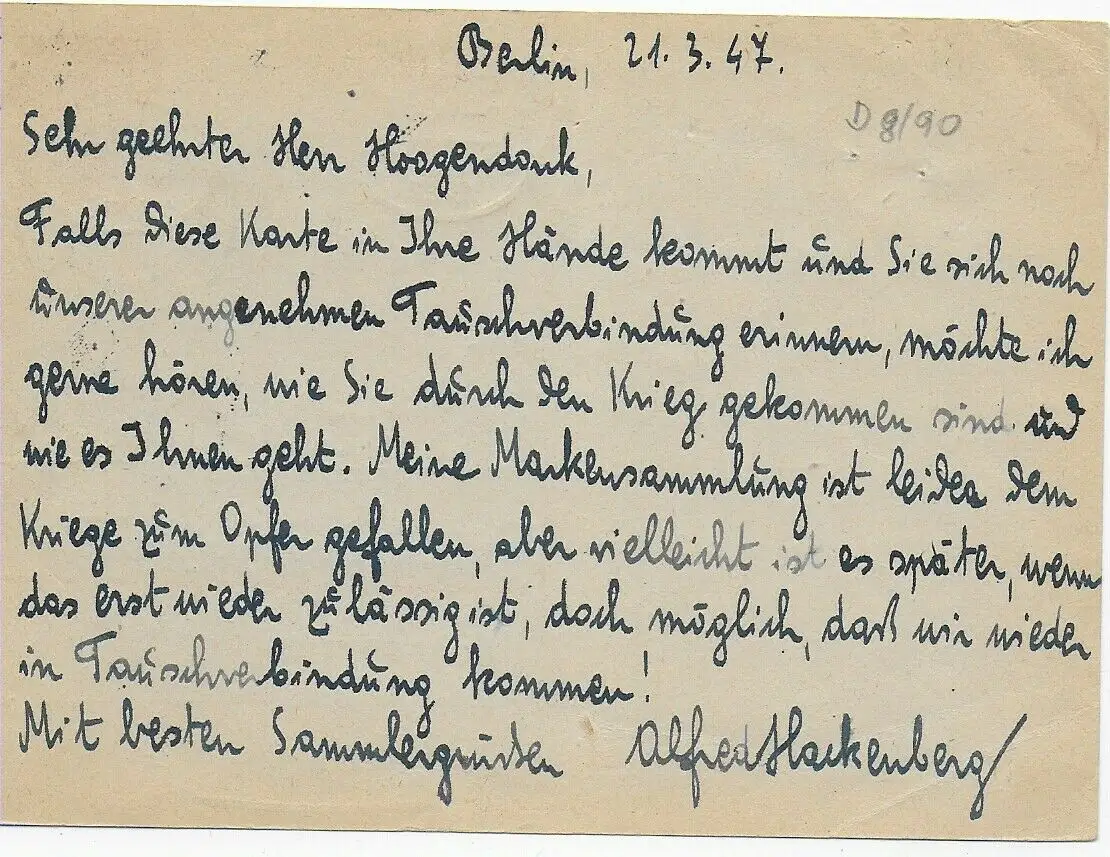 Berlin, 21.3.47.
D 8/90
Sehr geehrter Herr Hoogendonk,
Falls diese Karte in Ihre Hände kommt und Sie sich noch
unserer angenehmen Tauschverbindung erinnern, möchte ich
gerne hören, wie Sie durch den Krieg gekommen sind und
wie es Ihnen geht. Meine Markensammlung ist leider dem
Kriege zum Opfer gefallen, aber vielleicht ist es später, wenn
das erst wieder zulässig ist, doch möglich, daß wir wieder
in Tauschverbindung kommen!
Mit besten Sammlergrüßen Alfred Hackenberg